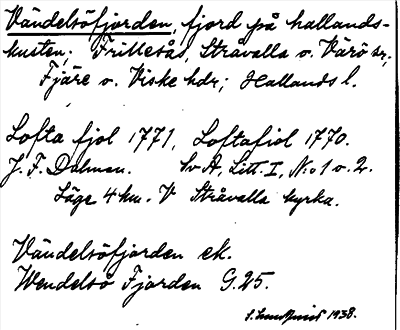 Vändelsöfjorden, fjord på hallands-
kusten; Frillesås, Stråvalla o. Värö sr,
Fjäre o. Viske hdr; Hallands l.
Lofta fjol 1771, Loftafiol 1770.
J. F. Dalman. Sv A, Litt. I, N:o 1 o. 2.
Läge 4 km. V Stråvalla kyrka.
Vändelsöfjorden ek.
Wendelsö Fjorden G. 25.
S. 1938.